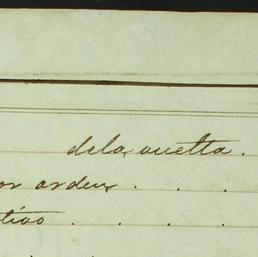 dela vuelta.
or orden . . .
tivo . . . .